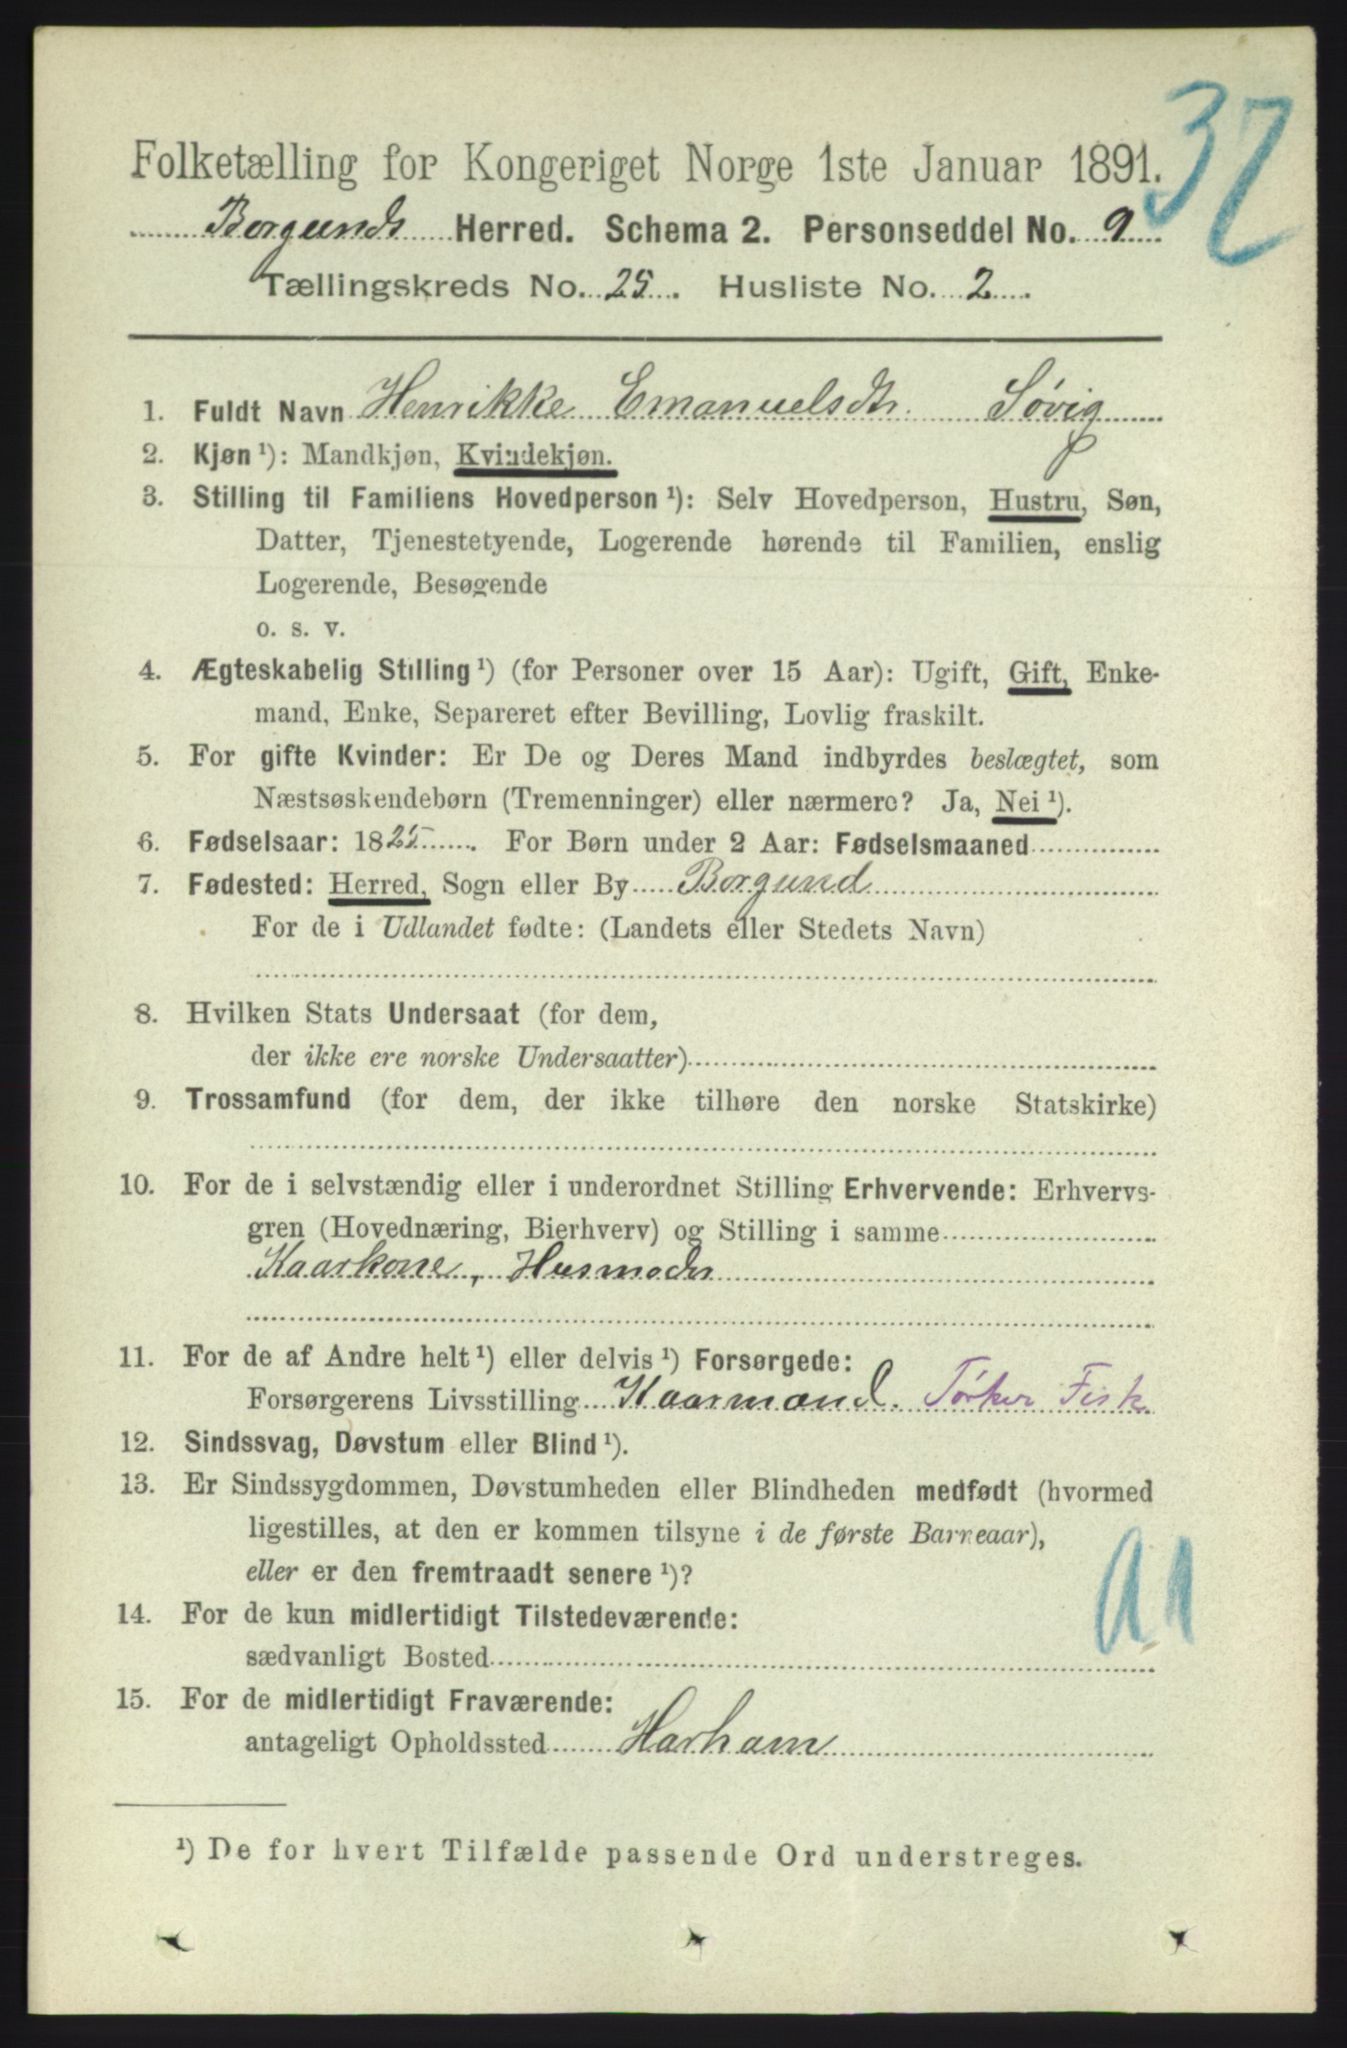 32
Folketælling for Kongeriget Norge 1ste Januar 1891.
Borgunds Herred. Schema 2. Personseddel No. 9
Tællingskreds No. 25. Husliste No. 2.
1. Fuldt Navn Henrikke Emanuelsdtr. Søvig
2. Kjøn ¹): Mandkjøn, Kvindekjøn.
3. Stilling til Familiens Hovedperson ¹): Selv Hovedperson, Hustru, Søn,
Datter, Tjenestetyende, Logerende hørende til Familien, enslig
Logerende, Besøgende
o. s. v.
4. Ægteskabelig Stilling ¹) (for Personer over 15 Aar): Ugift, Gift, Enke-
mand, Enke, Separeret efter Bevilling, Lovlig fraskilt.
5. For gifte Kvinder: Er De og Deres Mand indbyrdes beslægtet, som
Næstsøskendebørn (Tremenninger) eller nærmere? Ja, Nei ¹).
6. Fødselsaar: 1825. For Børn under 2 Aar: Fødselsmaaned
7. Fødested: Herred, Sogn eller By Borgund
For de i Udlandet fødte: (Landets eller Stedets Navn)
8. Hvilken Stats Undersaat (for dem,
der ikke ere norske Undersaatter)
9. Trossamfund (for dem, der ikke tilhøre den norske Statskirke)
10. For de i selvstændig eller i underordnet Stilling Erhvervende: Erhvervs-
gren (Hovednæring, Bierhverv) og Stilling i samme
Kaarkone, Husmoder
11. For de af Andre helt ¹) eller delvis ¹) Forsørgede:
Forsørgerens Livsstilling Kaarmand. Tørker Fisk.
12. Sindssvag, Døvstum eller Blind ¹).
13. Er Sindssygdommen, Døvstumheden eller Blindheden medfødt (hvormed
ligestilles, at den er kommen tilsyne i de første Barneaar),
eller er den fremtraadt senere ¹)?
14. For de kun midlertidigt Tilstedeværende:
sædvanligt Bosted
15. For de midlertidigt Fraværende:
antageligt Opholdssted Harham
¹) De for hvert Tilfælde passende Ord understreges.